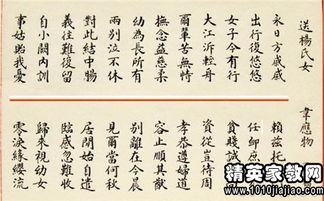 送楊氏女
永日方戚戚
出行復悠悠
女子今有行
大江泝輕舟
爾輩苦無恃
撫念益慈柔
幼為長所育
兩別泣不休
對此結中腸
義往難復留
自小闕內訓
事姑貽我憂
韋應物
賴茲托
任卹庶
貧賤誠
資從豈待周
孝恭遵婦道
容止順其猷
別離在今晨
見爾當何秋
居閒始自遣
臨感忽難收
歸來視幼女
零淚緣纓流
精英家教网
www.1010jiajiao.com